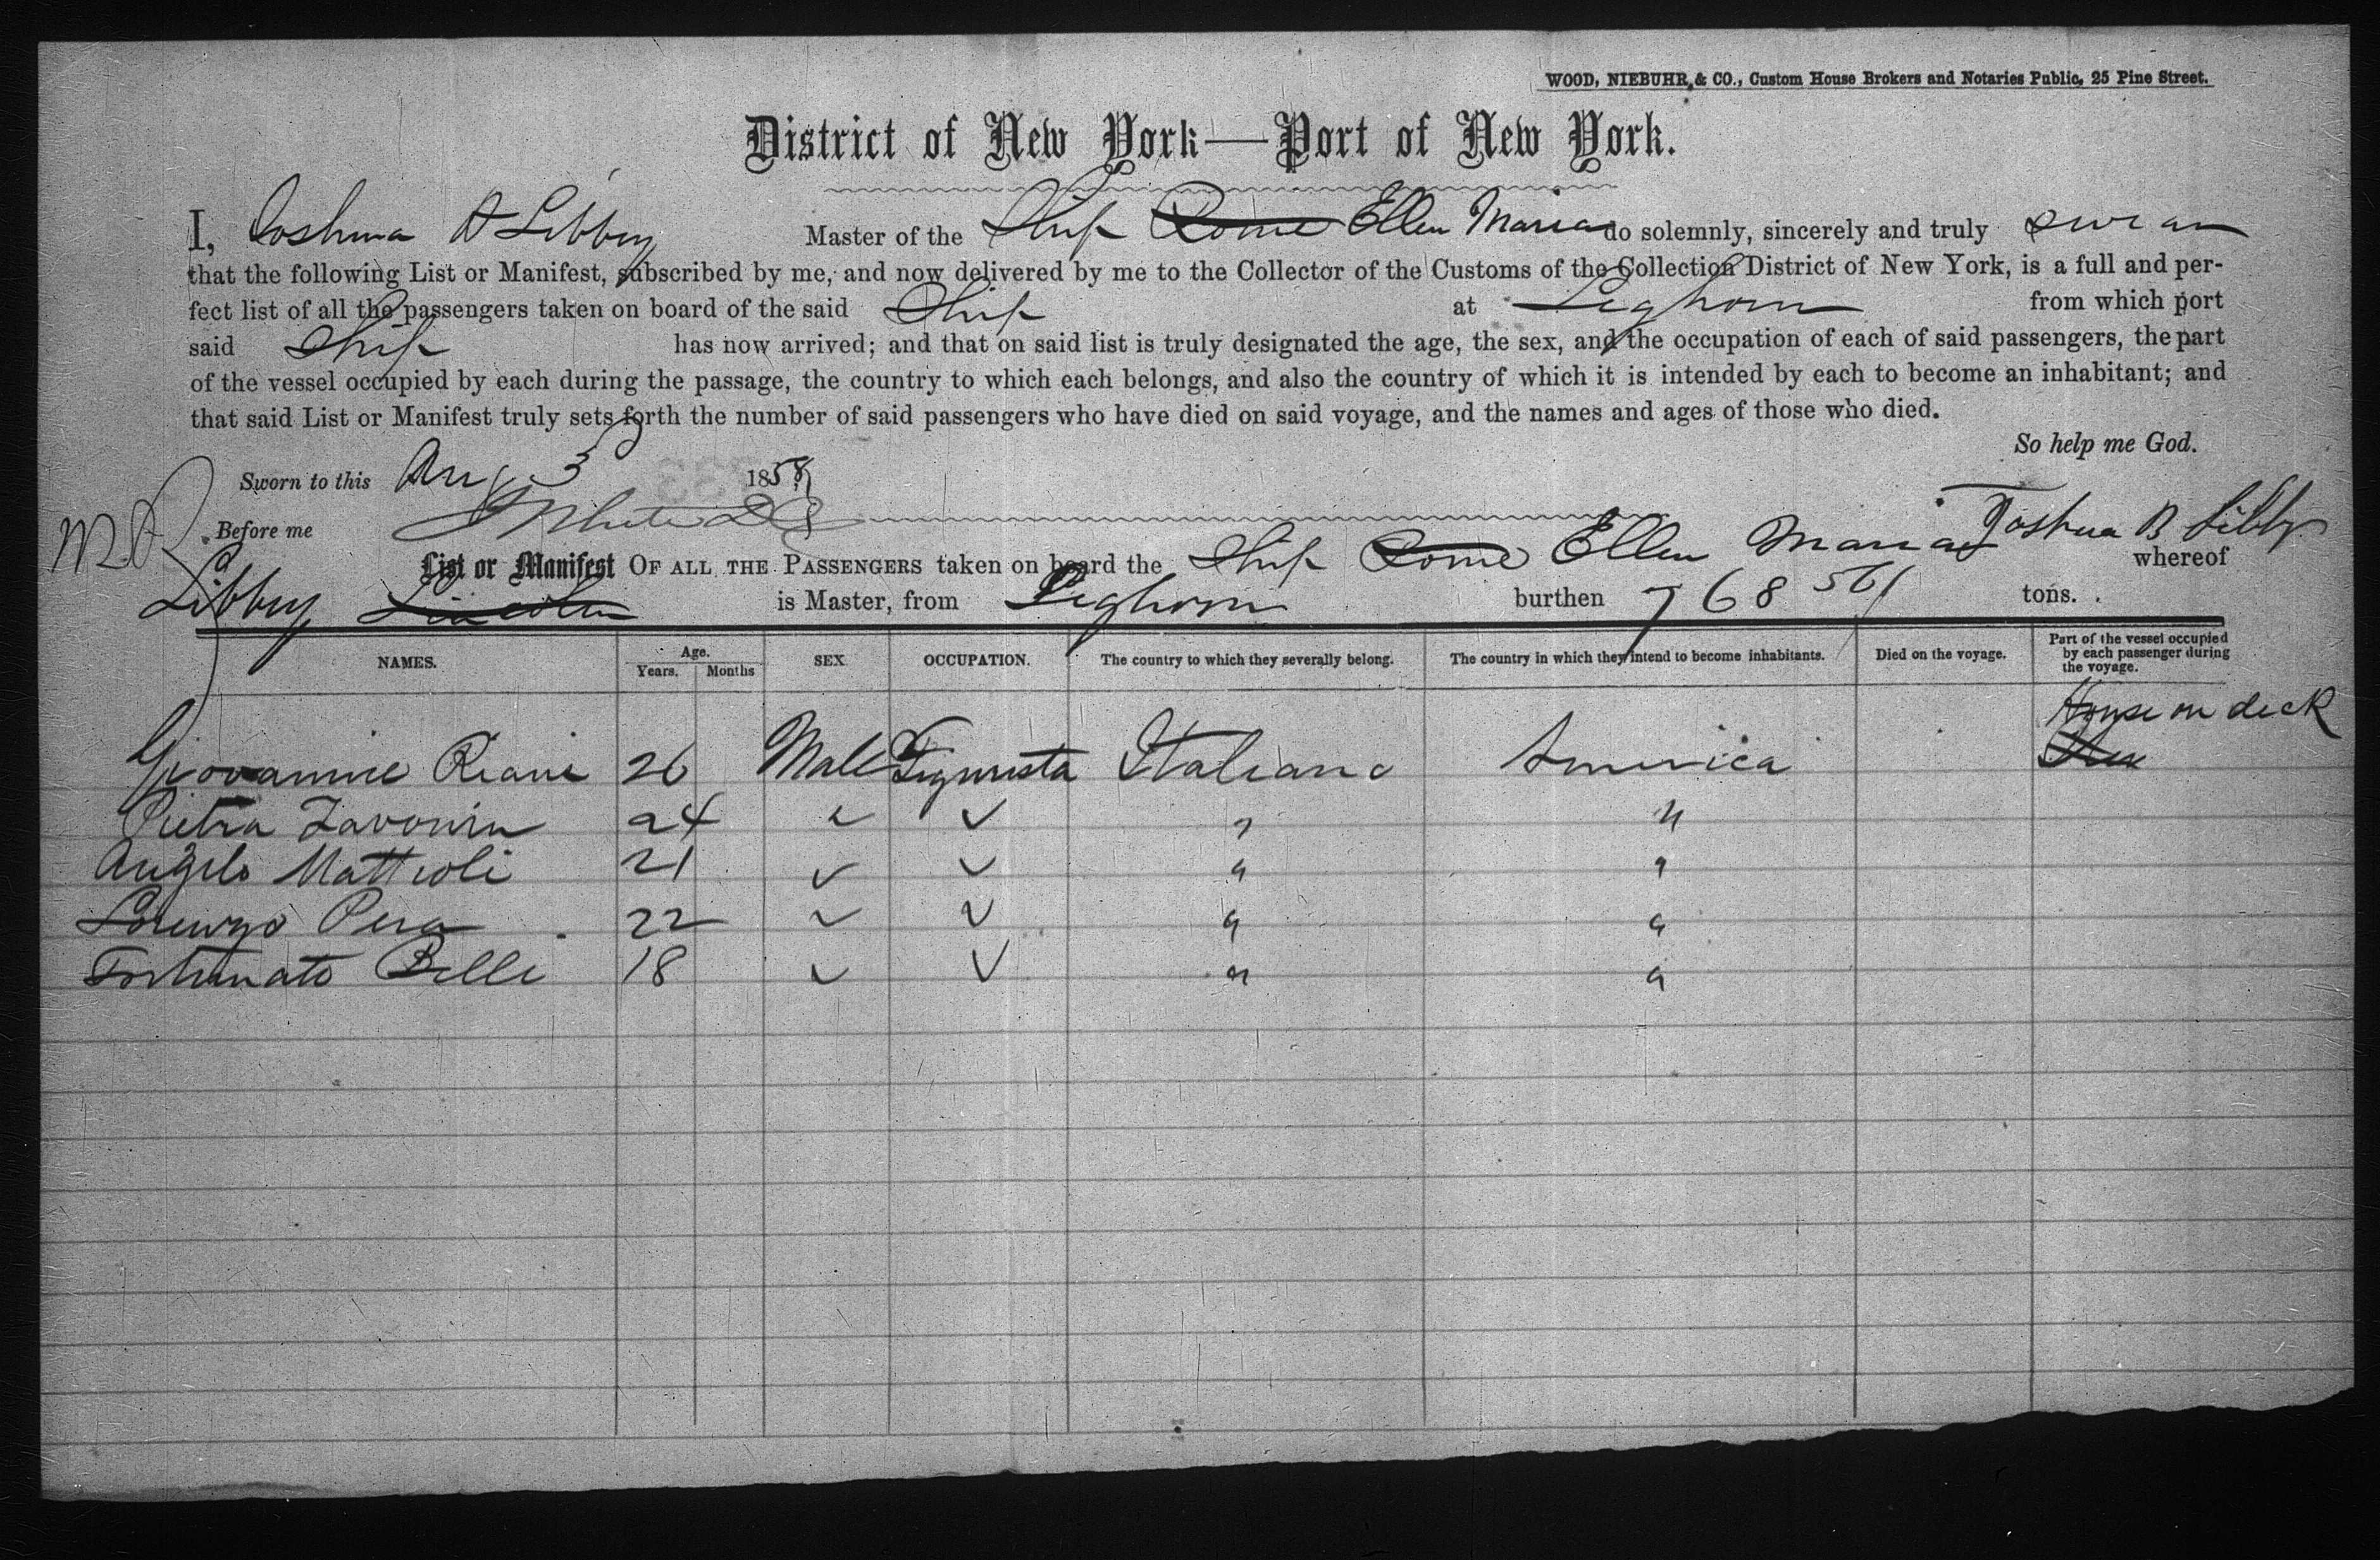 WOOD, NIEBUHR, & CO., Custom House Brokers and Notaries Public, 25 Pine Street.
District of New York—Port of New York.
I, Joshua B Libby Master of the Ship Rome Ellen Maria do solemnly, sincerely and truly swear
that the following List or Manifest, subscribed by me, and now delivered by me to the Collector of the Customs of the Collection District of New York, is a full and per-
fect list of all the passengers taken on board of the said Ship at Leghorn from which port
said Ship has now arrived; and that on said list is truly designated the age, the sex, and the occupation of each of said passengers, the part
of the vessel occupied by each during the passage, the country to which each belongs, and also the country of which it is intended by each to become an inhabitant; and
that said List or Manifest truly sets forth the number of said passengers who have died on said voyage, and the names and ages of those who died.
So help me God.
Sworn to this Aug 3 1858
Before me Joshua B Libby
List or Manifest OF ALL THE PASSENGERS taken on board the Ship Rome Ellen Maria whereof
Libby Lincoln is Master, from Leghorn burthen 768 tons.
NAMES. Age. Years. Months SEX OCCUPATION. The country to which they severally belong. The country in which they intend to become inhabitants. Died on the voyage. Part of the vessel occupied by each passenger during the voyage.
House on deck
Giovannie Riani 26 Male Figurista Italiano America
Pietra 24 " "
Angelo Mattioli 21 " "
Lorenzo Pera 22 " "
Fortunato Belli 18 " "